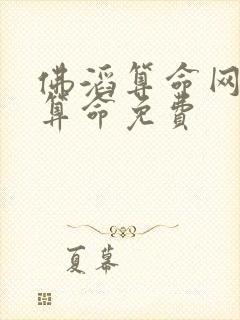 佛滔算命网
算命免费
夏幕